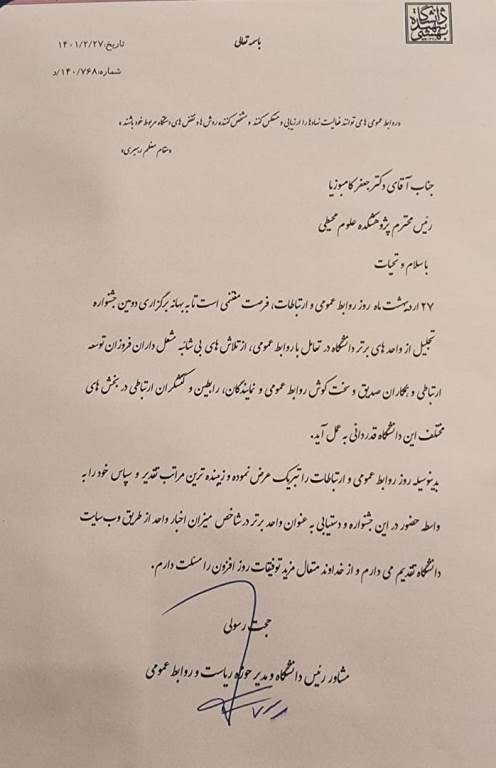 دانشگاه شهید بهشتی
باسمه تعالی
تاریخ: ۱۴۰۱/۲/۲۷
شماره: ۱۴۰/۷۶۸/د
«روابط عمومی ها می توانند فعالیت نهادها را ارزیابی و منعکس کنند و مشخص کننده روش ها و نقص های دستگاه مربوط خود باشند»
«مقام معظم رهبری»
جناب آقای دکتر جعفر کامبوزیا
رئیس محترم پژوهشکده علوم محیطی
با سلام و تحیات
۲۷ اردیبهشت ماه روز روابط عمومی و ارتباطات، فرصت مغتنمی است تا به بهانه برگزاری دومین جشنواره
تجلیل از واحد های برتر دانشگاه در تعامل با روابط عمومی، از تلاش های بی شائبه مشعل داران فروزان توسعه
ارتباطی و همکاران صدیق و سخت کوش روابط عمومی و نمایندگان، رابطین و کنشگران ارتباطی در بخش های
مختلف این دانشگاه قدردانی به عمل آید.
بدینوسیله روز روابط عمومی و ارتباطات را تبریک عرض نموده و زیبنده ترین مراتب تقدیر و سپاس خود را به
واسطه حضور در این جشنواره و دستیابی به عنوان واحد برتر در شاخص میزان اخبار واحد از طریق وب سایت
دانشگاه تقدیم می دارم و از خداوند متعال مزید توفیقات روز افزون را مسئلت دارم.
حجت رسولی
مشاور رئیس دانشگاه و مدیر حوزه ریاست و روابط عمومی